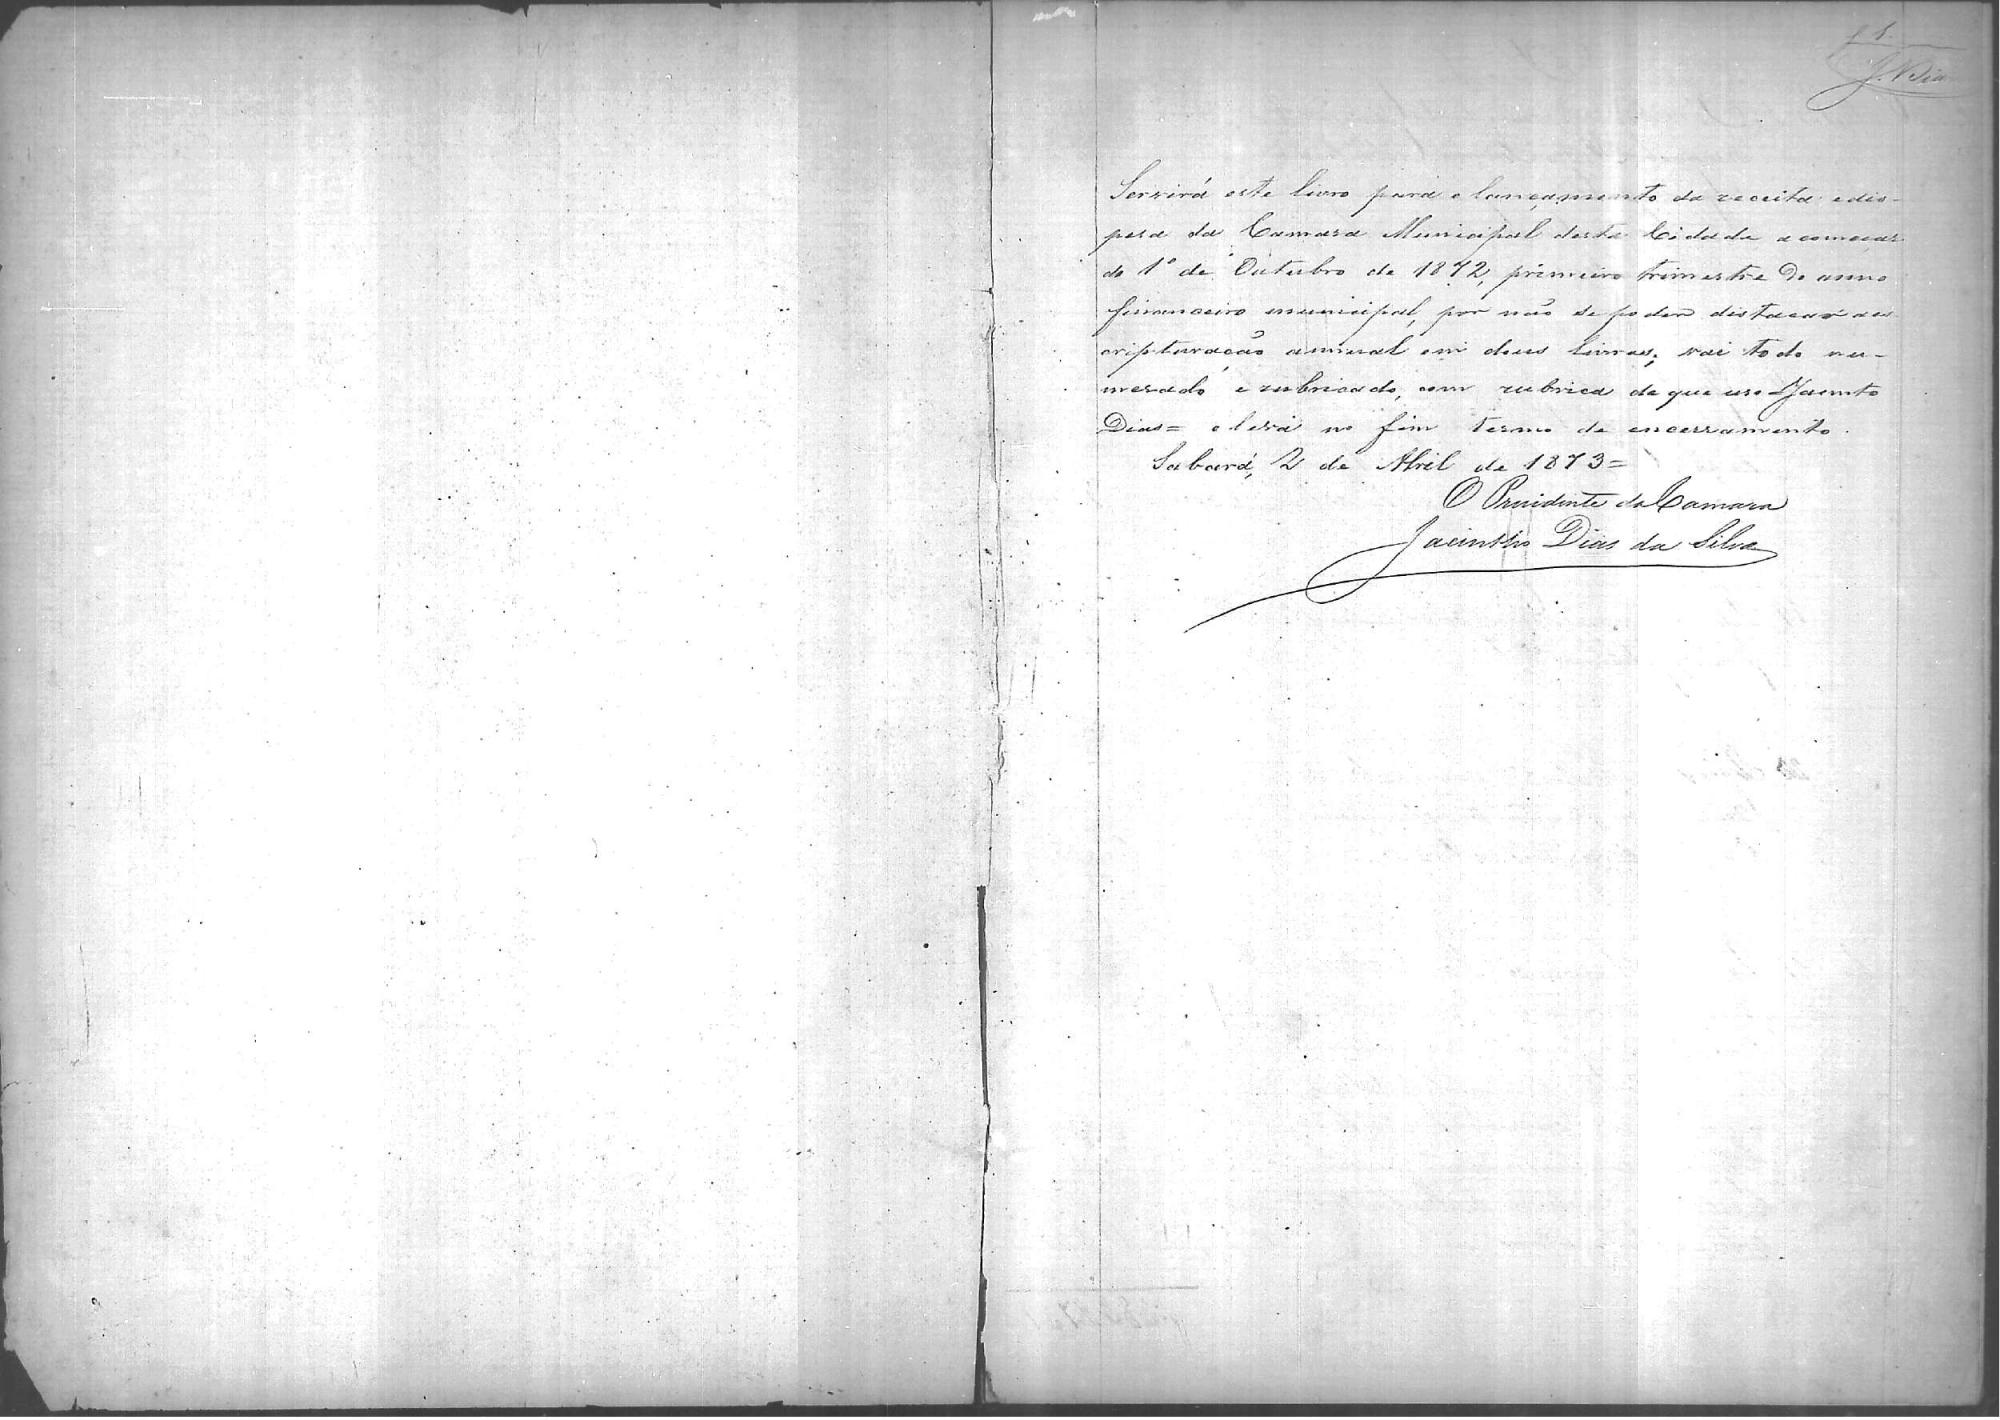 f 1.
J. Dias
Servirá este livro para o lançamento da receita e dis-
pesa da Camara Municipal desta Cidade a começar
do 1º de Outubro de 1872, primeiro trimestre do anno
financeiro municipal, por não se poder distacar a es
cripturação annual em dous livros; vai todo nu-
merado e rubricado, com rubrica de que uso Jacinto
Dias = e levá no fim termo de encerramento.
Sabará, 2 de Abril de 1873 =
O Presidente da Camara
Jacintho Dias da Silva